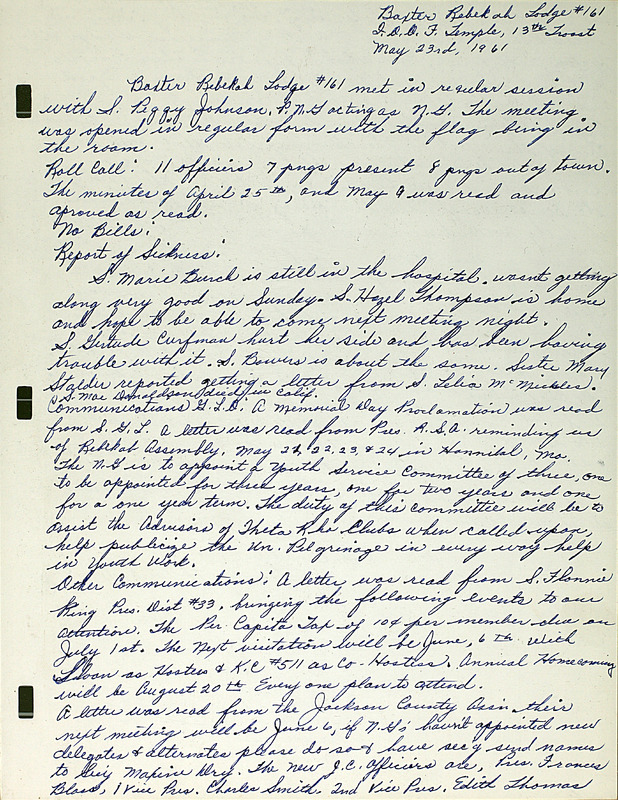 Baxter Rebekah Lodge #161
I.O.O.F. Temple, 13th Troost
May 23rd, 1961
Baxter Rebekah Lodge #161 met in regular session
with S. Peggy Johnson, P.N.G acting as N.G. The meeting
was opened in regular form with the flag being in
the room.
Roll Call: 11 officirs 7 pngs present 8 pngs out of town.
The minutes of April 25th, and May 9 was read and
aproved as read.
No Bills:
Report of Sickness:
S. Marie Burch is still in the hospital. wasnt getting
along very good on Sunday. S. Hazel Thompson is home
and hope to be able to come next meeting night.
S Gertude Curfman hurt her side and has been having
trouble with it. S. Bowers is about the same. Sister Mary
Stalder reported getting a letter from S. Lelia McMickles.
S. Mae Donaldson died in Calif.
Communications G.L.O: A Memorial Day Proclamation was read
from S.G.L. A letter was read from Pres. R.S.A. reminding us
of Rebekah Assembly, May 21, 22, 23, & 24 in Hannibal, Mo.
The N.G is to appoint a Youth Service Committee of three, one
to be appointed for three years, one for two years and one
for a one year term. The duty of this committee will be to
assist the Advisors of Theta Rho Clubs when called upon,
help publicize the Un. Pilgrimage in every way help
in Youth Work.
Other Communications: A letter was read from S. Flonnie
King Pres. Dist #33. bringing the following events to our
attention. The Per. Capita Tax of 10¢ per member due on
July 1st. The Next visitation will be June, 6th. Wick
Sloan as Hostess & K.C #511 as Co-Hostess. Annual Homecoming
will be August 20th Everyone plan to attend.
A letter was read from the Jackson County Assn. their
next meeting will be June 6, if N.G's havn't appointed new
delegates & alternates please do so & have sec'y send names
to Maxine Dry. The new J.C. Officers are, Pres. Frances
Blass, 1 Vice Pres. Charles Smith, 2nd Vice Pres. Edith Thomas